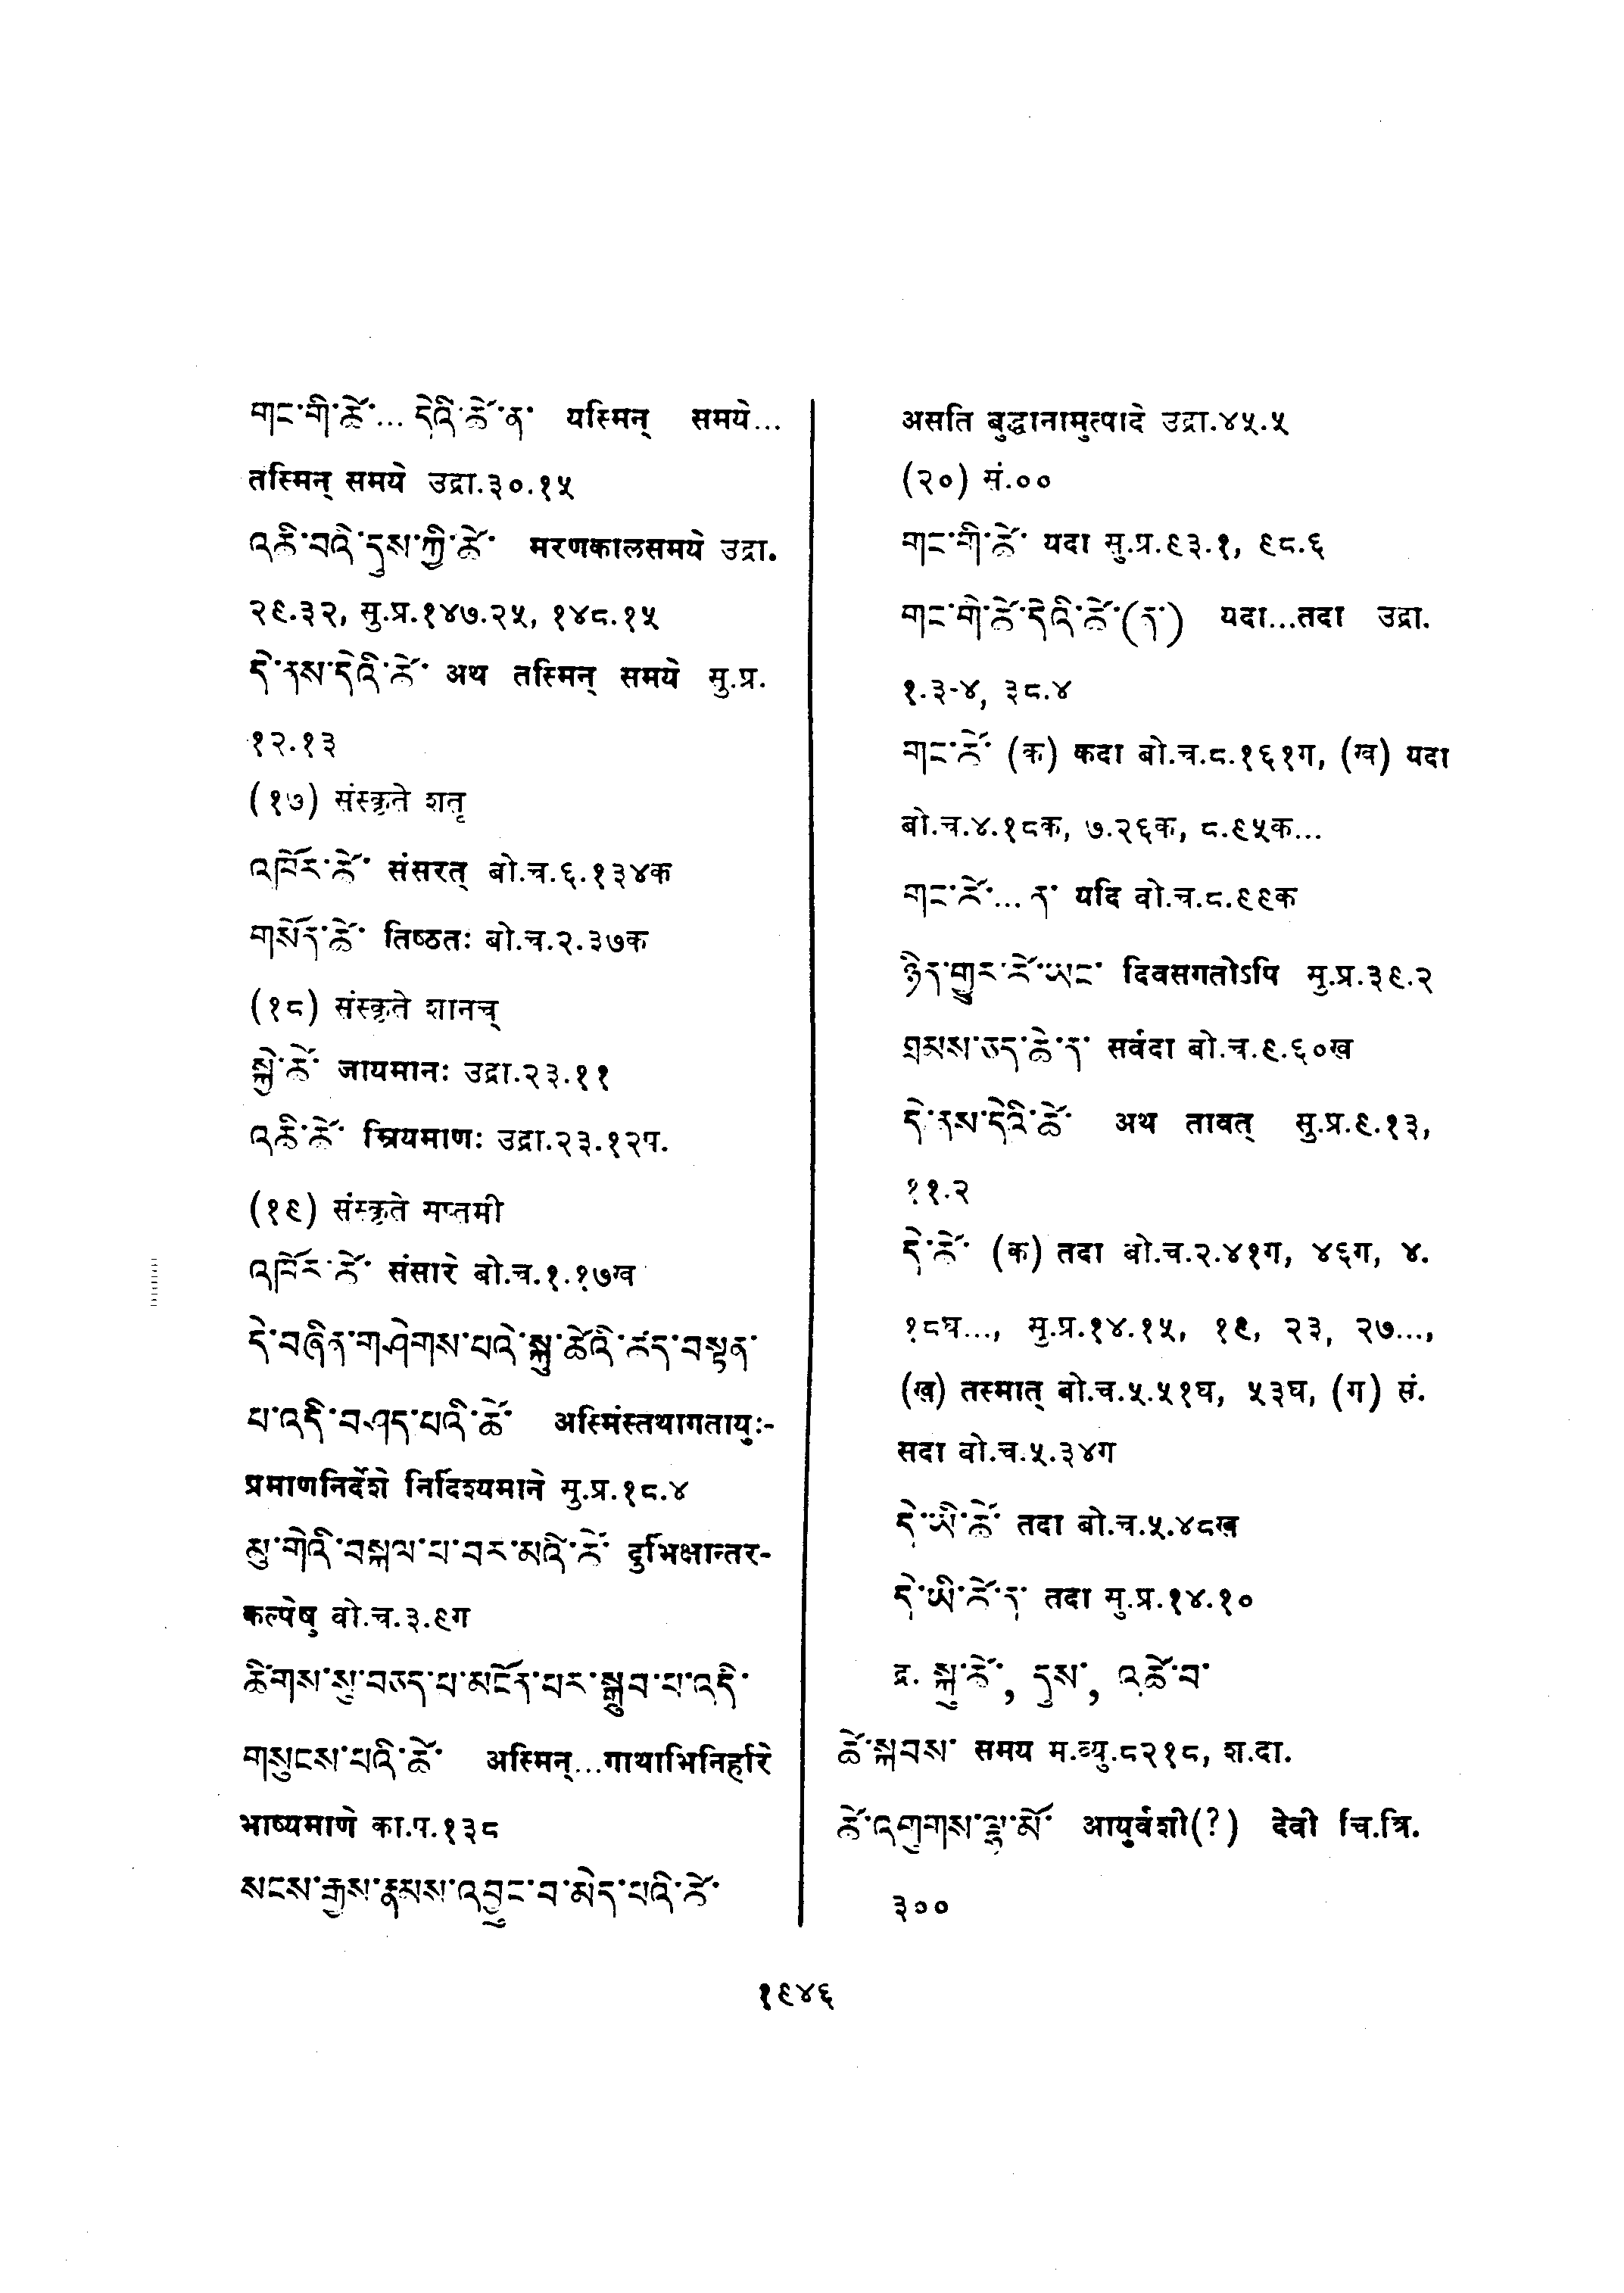 གང་གི་ཚེ་... དེའི་ཚེ་ན་ यस्मिन् समये...
तस्मिन् समये उद्रा.३०.१५
འཆི་བའི་དུས་ཀྱི་ཚེ་ मरणकालसमये उद्रा.
२९.३२, सु.प्र.१४७.२५, १४८.१५
དེ་ནས་དེའི་ཚེ་ अथ तस्मिन् समये सु.प्र.
१२.१३
(१७) संस्कृते शतृ
འཁོར་ཚེ་ संसरत् बो.च.६.१३४क
གསོན་ཚེ་ तिष्ठतः बो.च.२.३७क
(१८) संस्कृते शानच्
སྐྱེ་ཚེ་ जायमानः उद्रा.२३.११
འཆི་ཚེ་ म्रियमाणः उद्रा.२३.१२प.
(१९) संस्कृते सप्तमी
འཁོར་ཚེ་ संसारे बो.च.१.१७ख
དེ་བཞིན་གཤེགས་པའི་སྐུ་ཚེའི་ཚད་བསྟན་
པ་འདི་བཤད་པའི་ཚེ་ अस्मिंस्तथागतायुः-
प्रमाणनिर्देशे निर्दिश्यमाने सु.प्र.१८.४
མུ་གེའི་བསྐལ་པ་བར་མའི་ཚེ་ दुर्भिक्षान्तर-
कल्पेषु बो.च.३.९ग
ཚིགས་སུ་བཅད་པ་མངོན་པར་སྒྲུབ་པ་འདི་
གསུངས་པའི་ཚེ་ अस्मिन्...गाथाभिनिर्हारे
भाष्यमाणे का.प.१३८
སངས་རྒྱས་རྣམས་འབྱུང་བ་མེད་པའི་ཚེ་
असति बुद्धानामुत्पादे उद्रा.४५.५
(२०) सं.००
གང་གི་ཚེ་ यदा सु.प्र.९३.१, ९८.६
གང་གི་ཚེ་དེའི་ཚེ་(ན་) यदा...तदा उद्रा.
१.३-४, ३८.४
གང་ཚེ་ (क) कदा बो.च.८.१६१ग, (ख) यदा
बो.च.४.१८क, ७.२६क, ८.९५क...
གང་ཚེ་... ན་ यदि बो.च.८.९९क
ཉིན་གྱུར་ཚེ་ཡང་ दिवसगतोऽपि सु.प्र.३९.२
ཐམས་ཅད་ཚེ་ན་ सर्वदा बो.च.९.६०ख
དེ་ནས་དེའི་ཚེ་ अथ तावत् सु.प्र.९.१३,
११.२
དེ་ཚེ་ (क) तदा बो.च.२.४१ग, ४६ग, ४.
१८घ..., सु.प्र.१४.१५, १९, २३, २७...,
(ख) तस्मात् बो.च.५.५१घ, ५३घ, (ग) सं.
सदा बो.च.५.३४ग
དེ་ཡི་ཚེ་ तदा बो.च.५.४८ख
དེ་ཡི་ཚེ་ན་ तदा सु.प्र.१४.१०
द्र. སྐུ་ཚེ་, དུས་, འཚོ་བ་
ཚེ་སྐབས་ समय म.व्यु.८२१८, श.दा.
ཚེ་འགུགས་ལྷ་མོ་ आयुर्वशी(?) देवी चि.त्रि.
३००
१९४६